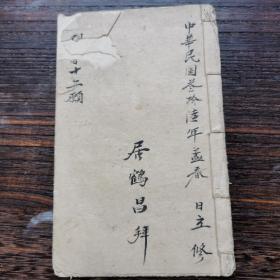 中華民国叁拾陸年孟春 日立 修
居鶴昌拜
十二願